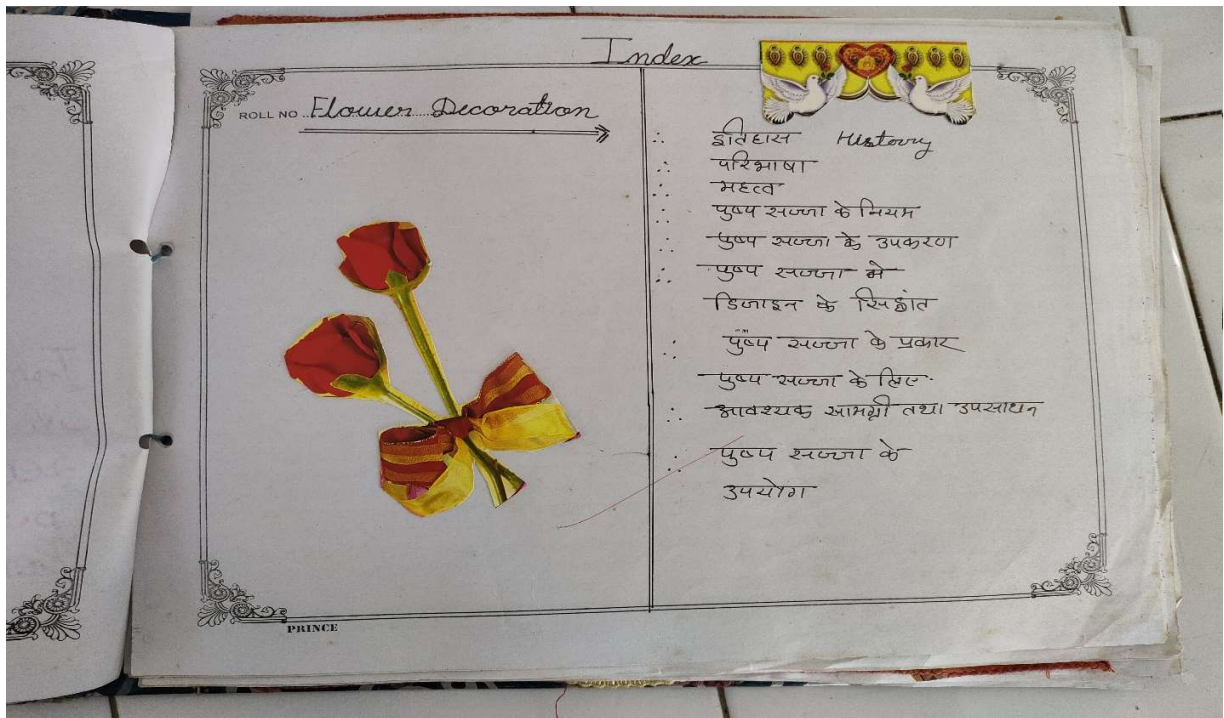 Index
ROLL NO. Flower Decoration
∴ इतिहास History
∴ परिभाषा
∴ महत्व
∴ पुष्प सज्जा के नियम
∴ पुष्प सज्जा के उपकरण
∴ पुष्प सज्जा मे
डिजाइन के सिद्धांत
∴ पुष्प सज्जा के प्रकार
पुष्प सज्जा के लिए
∴ आवश्यक सामग्री तथा उपसाधन
∴ पुष्प सज्जा के
उपयोग
PRINCE